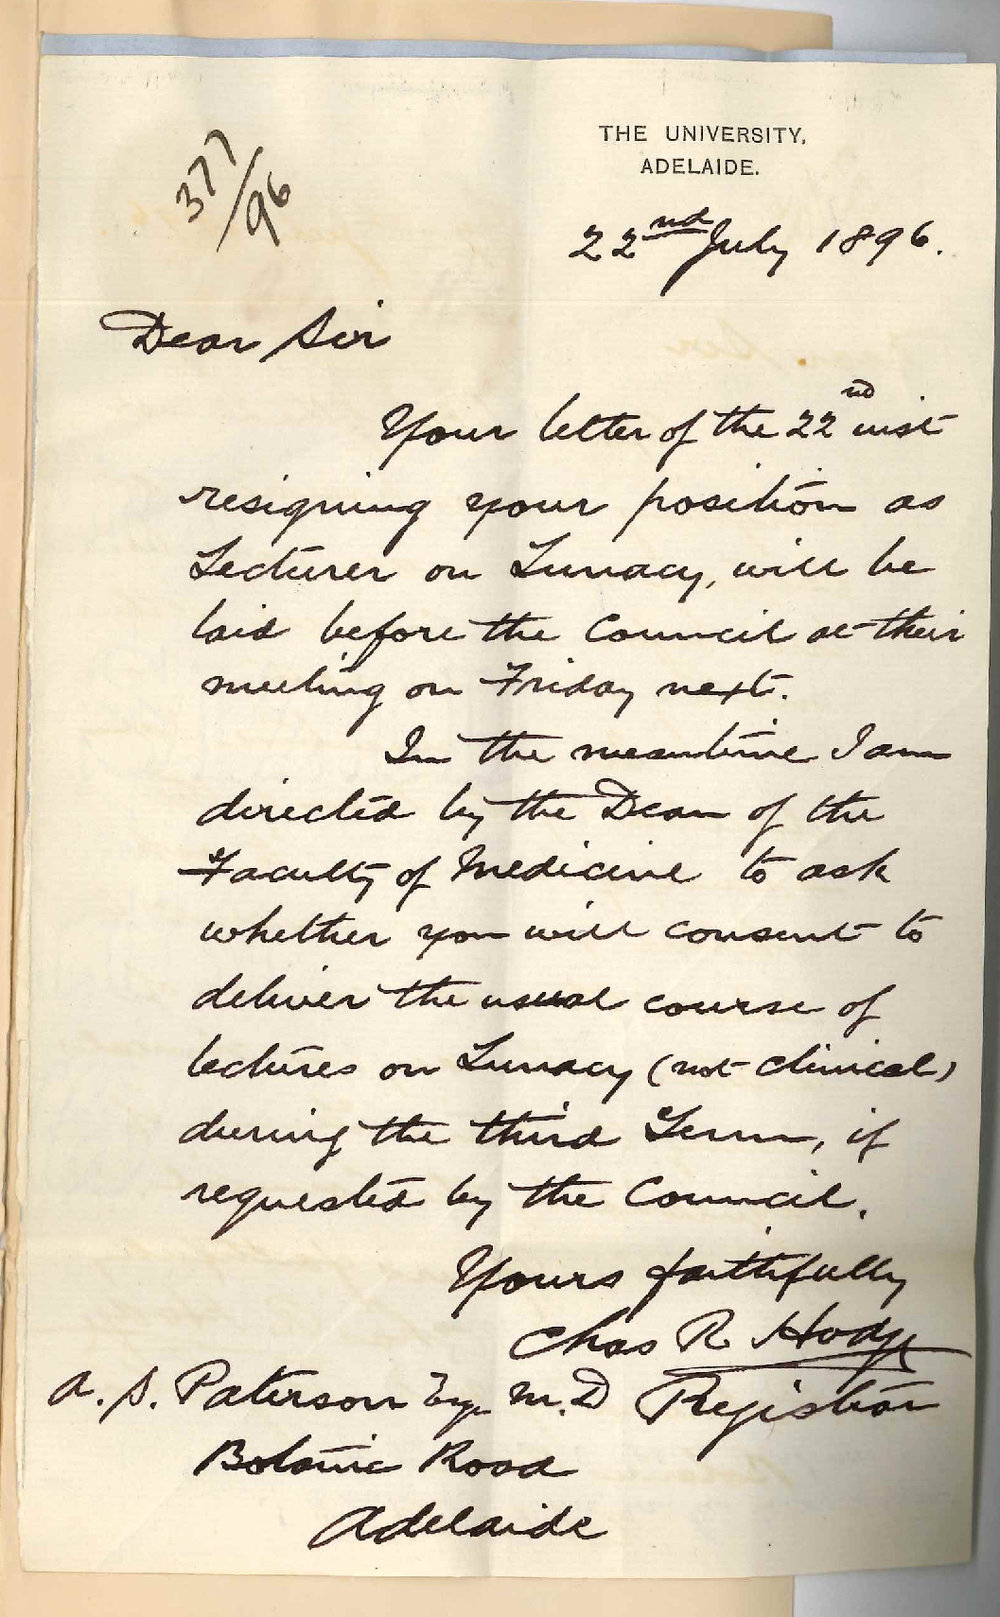 THE UNIVERSITY,
ADELAIDE.
377/96
22nd July 1896.
Dear Sir
Your letter of the 22nd inst
resigning your position as
Lecturer on Lunacy, will be
laid before the Council at their
meeting on Friday next.
In the meantime I am
directed by the Dean of the
Faculty of Medicine to ask
whether you will consent to
deliver the usual course of
lectures on Lunacy (not clinical)
during the third Term, if
requested by the Council.
Yours faithfully
Chas R Hodge
Registrar
A. S. Paterson Esqr M.D
Botanic Road
Adelaide